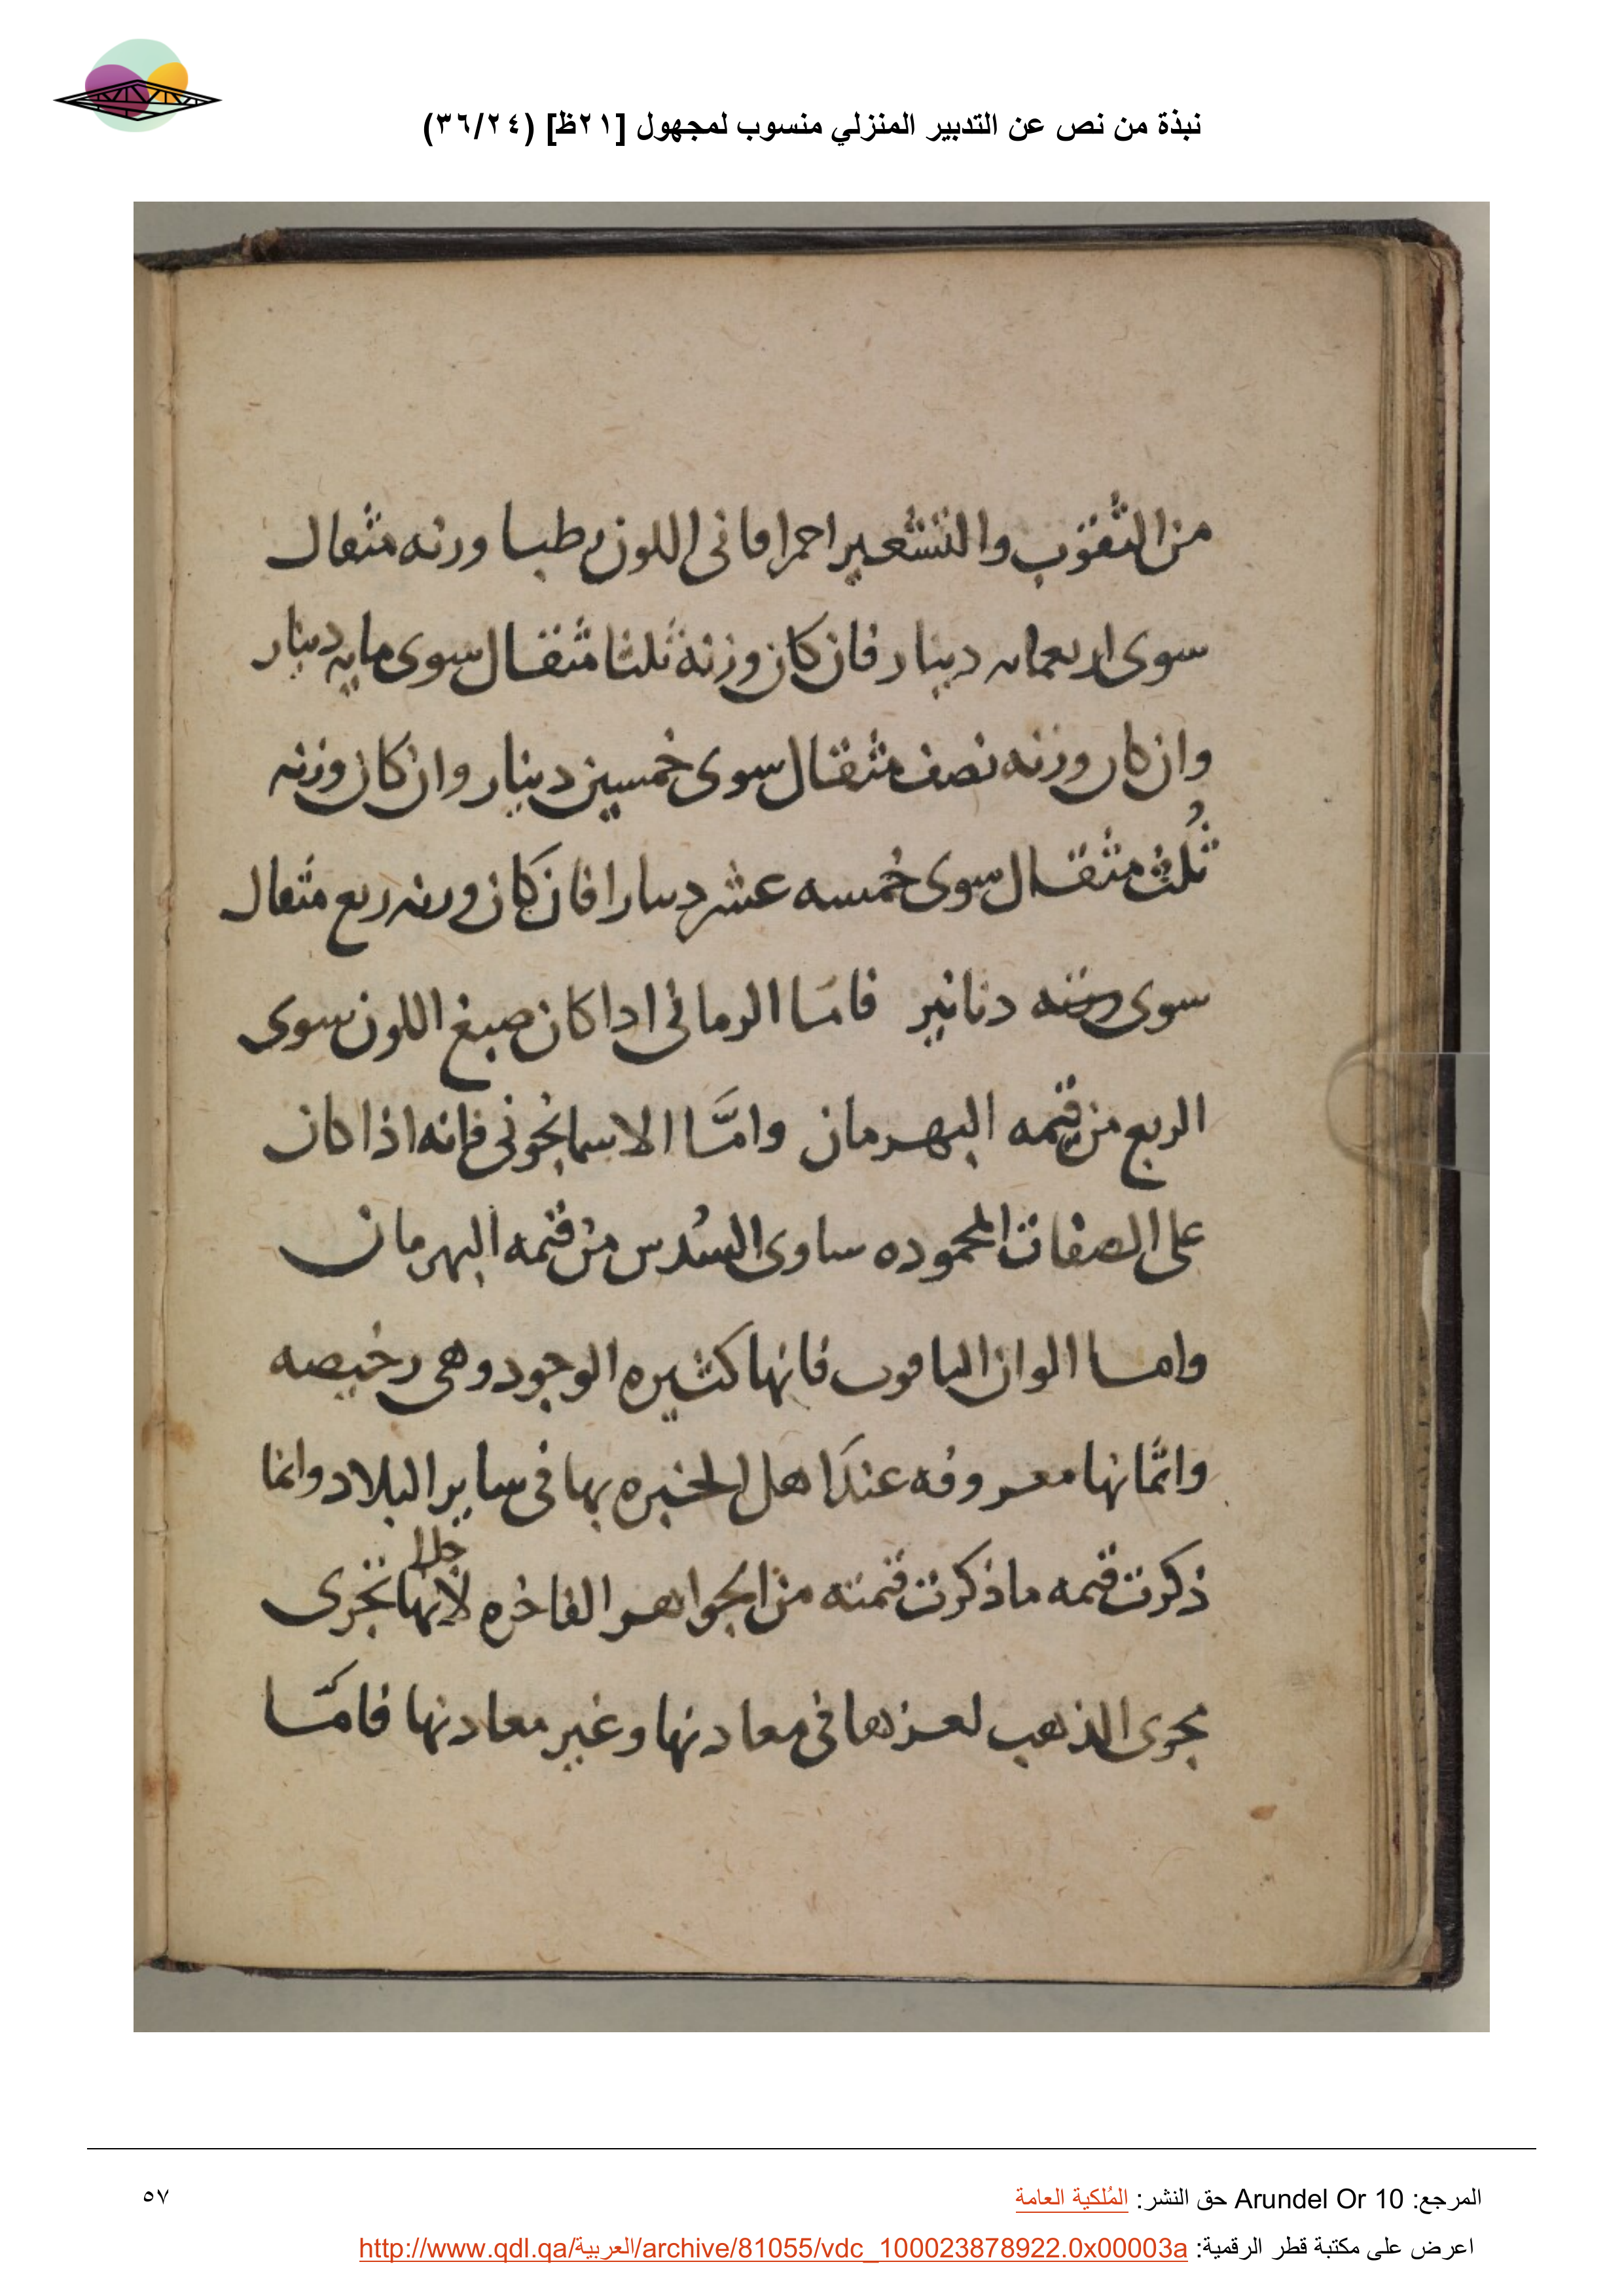 نبذة من نص عن التدبير المنزلي منسوب لمجهول [٢١ظ] (٣٦/٢٤)
من الثقوب والتشعير احمرا قاني اللون رطبا وزنه مثقال
سوى اربعمايه دينار فان كان وزنة ثلثا مثقال سوى مايه دينار
وان كان وزنه نصف مثقال سوى خمسين دينار وان كان وزنه
ثُلث مثقال سوى خمسه عشر دينارا فان كان وزنه ربع مثقال
سوى دنانير فامّا الرماني اذا كان صبغ اللون سوى
الربع من قيمه البهرمان وامَّا الاسمانجوني فانه اذا كان
على الصفات المحموده ساوى السُدس من قيمه البهرمان
واما الوان الياقوت فانها كثيره الوجود وهى رخيصه
واثمانها معروفه عند اهل الخبره بها فى ساير البلاد وانما
ذكرت قيمه ما ذكرت قيمته من الجواهر الفاخره لانها تجرى
مجرى الذهب لعزها في معادنها وغير معادنها فامّا
المرجع: Arundel Or 10 حق النشر: المُلكية العامة
٥٧
اعرض على مكتبة قطر الرقمية: http://www.qdl.qa/العربية/archive/81055/vdc_100023878922.0x00003a